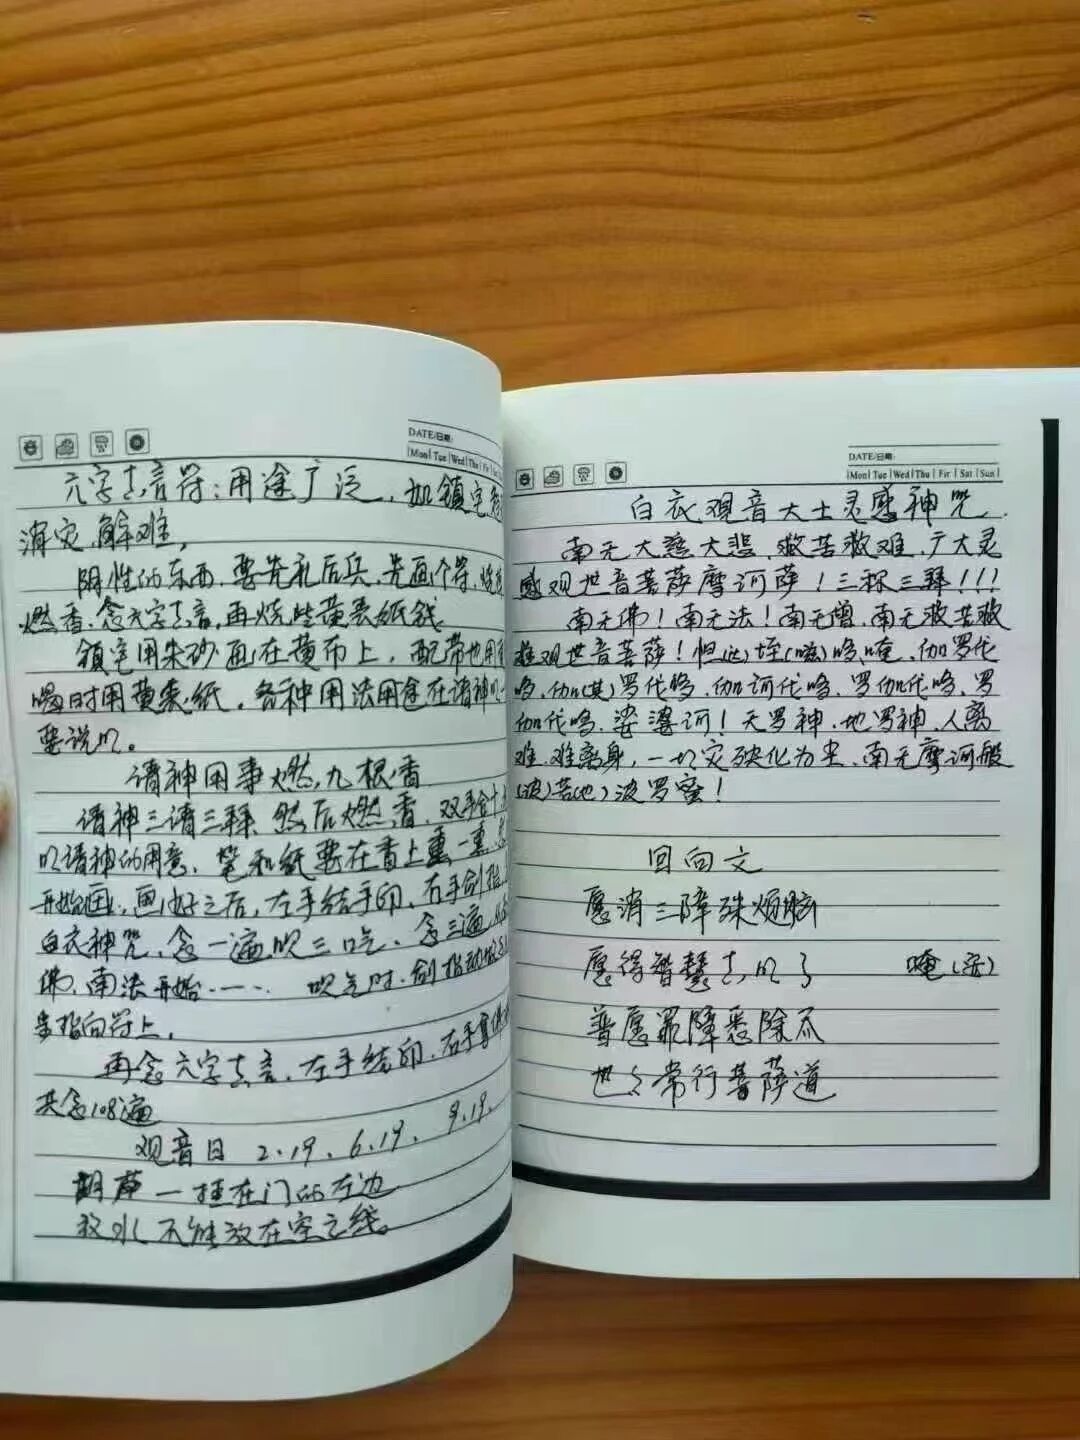 DATE/日期:
Mon Tue Wed Thu Fri
六字真言符：用途广泛，如镇宅
消灾、解难，
阴性的东西，要先礼后兵，先画个符，烧
燃香、念六字真言，再烧些黄表纸钱
镇宅用朱砂画在黄布上，配带也用
喝时用黄表纸。各种用法用途在请神时
要说明。
请神用事燃九根香
请神三请三拜 然后燃香，双手合十
明请神的用意，笔和纸要在香上熏一熏，
开始画，画好之后，左手结手印，右手剑指
白衣神咒，念一遍吹三口气，念三遍，
佛，南法开始…… 吹气时，剑指
指向符上，
再念六字真言，左手结印，右手
共念108遍
观音日 2.19、6.19、9.19、
葫芦一挂在门的左边
放水不能放在宅之线。
DATE/日期:
Mon Tue Wed Thu Fri Sat Sun
白衣观音大士灵感神咒
南无大慈大悲、救苦救难、广大灵
感观世音菩萨摩诃萨！三称三拜！！！
南无佛！南无法！南无僧，南无救苦救
难观世音菩萨！怛(达)垤(哦)哆、唵、伽罗伐
哆、伽(其)罗伐哆、伽诃伐哆、罗伽伐哆、罗
伽伐哆、娑婆诃！天罗神、地罗神、人离
难、难离身，一切灾殃化为尘，南无摩诃般
(波)若(也)波罗蜜！
回向文
愿消三障殊烦脑
愿得智慧真明了 唵(安)
普愿罪障悉除瓜
世々常行菩萨道